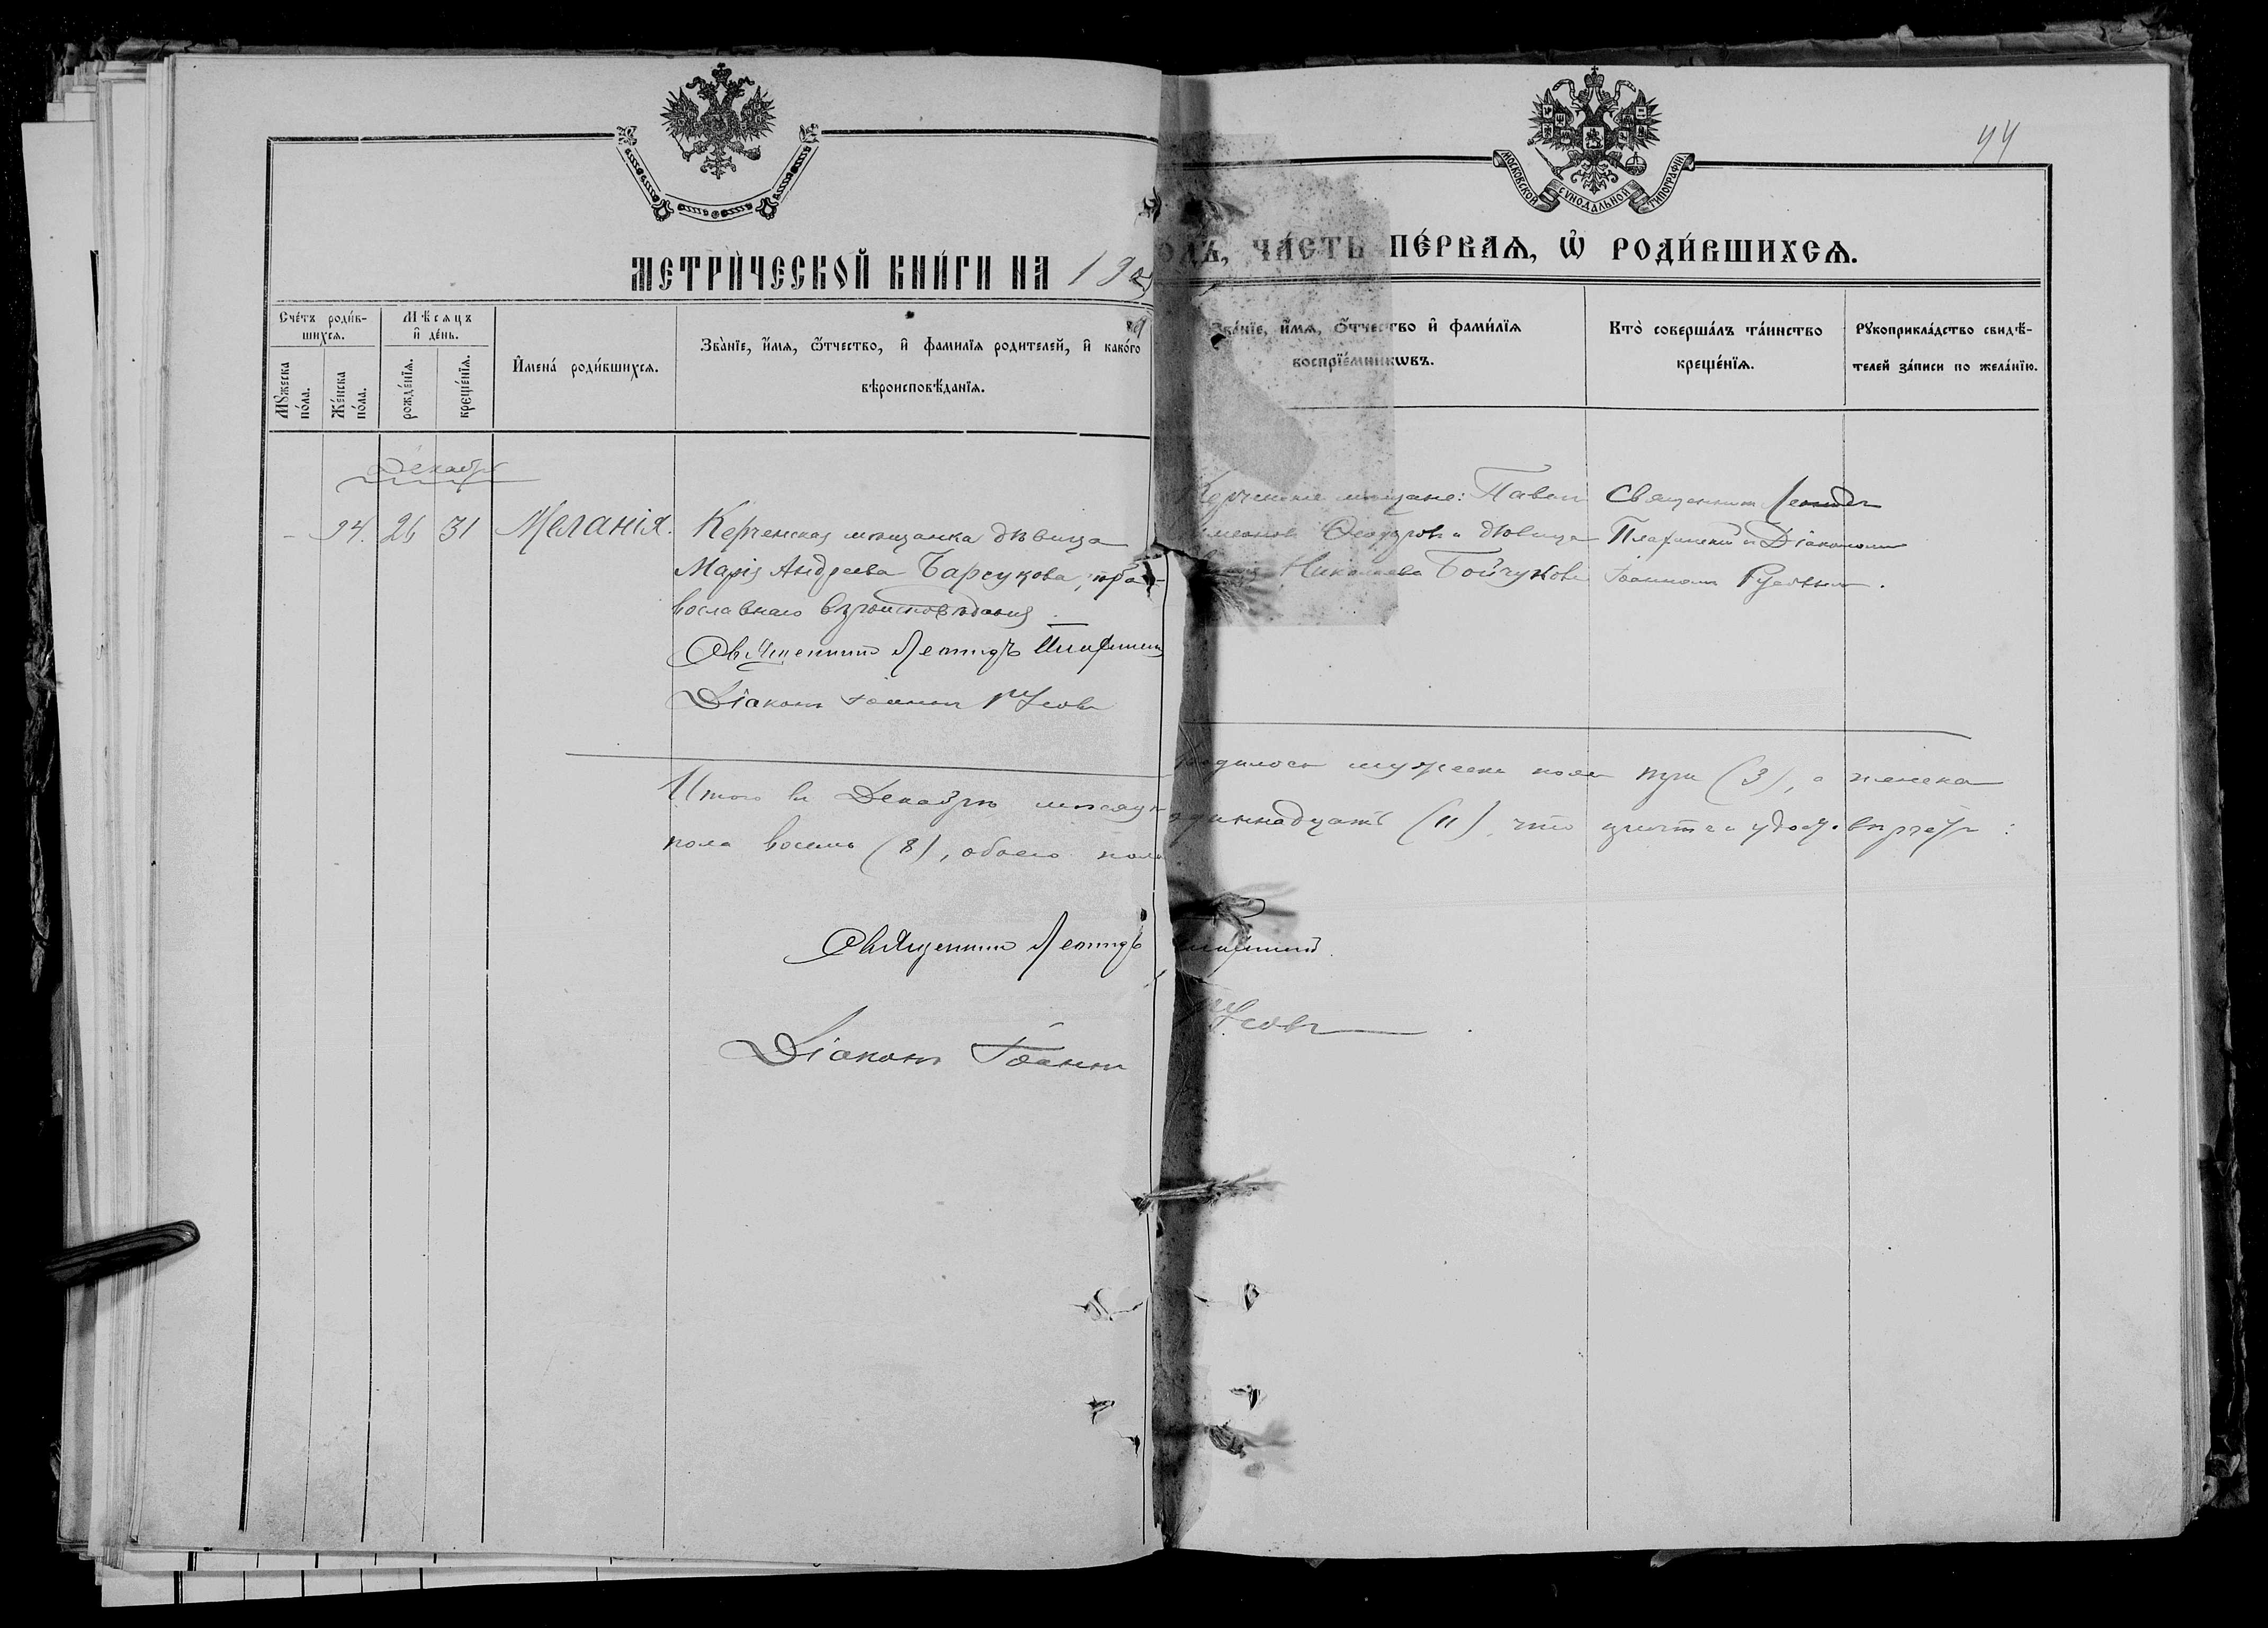 МОСКОВСКОЙ СѴНОДАЛЬНОЙ ТИПОГРАФІИ
МЕТРИ́ЧЕСКОЙ КНИ́ГИ НА 190
ОДЪ, ЧА́СТЬ ПЕ́РВАЯ, Ѿ РОДИ́ВШИХСЯ.
Сче́тъ роди́в-
шихся.
Мꙋ́жеска по́ла.
Же́нска по́ла.
Мѣ́сяцъ
и҆ де́нь.
рожде́нїя.
креще́нїя.
И҆мена́ роди́вшихся.
Зва́нїе, и҆́мя, ѻ҆́тчество, и҆ фами́лїя роди́телей, и҆ како́го
вѣроисповѣ́данїя.
Зва́нїе, и҆́мя, ѻ҆́тчество и҆ фами́лїя
воспрїе́мникѡвъ.
Кто̀ соверша́лъ та́инство
креще́нїя.
Рꙋкоприкла́дство свидѣ́-
телей за́писи по жела́нїю.
Декабрь
- 94. 26 31 Меланія.
Керченская мѣщанка дѣвица
Марія Андреева Барсукова, пра-
вославнаго вѣроисповѣданія
Священникъ Леонидъ
Діаконъ Іоаннъ Русовъ
Керченскіе мѣщане: Павелъ
Ѳеодоровъ и дѣвица
Николаева Бойчукова
Священникъ Леонидъ
и Діакономъ
Іоанномъ Русовымъ.
Итого въ Декабрѣ мѣсяцѣ родилось мужеска пола три (3), а женска
пола восемь (8), обоего пола одиннадцать (11), что
Священникъ Леонидъ
Діаконъ Іоаннъ Русовъ